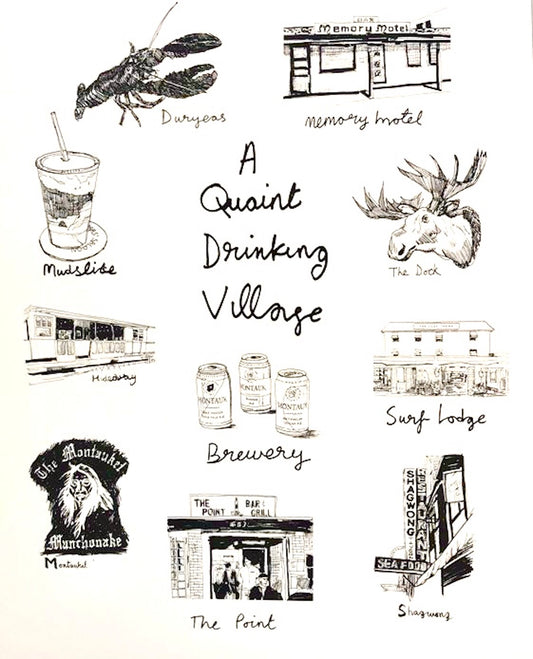 BAR
Memory Motel
Duryeas
memory motel
A
Quaint
Drinking
Village
Mudslide
The Dock
Hideaway
MONTAUK
MONTAUK
MONTAUK
Surf Lodge
Brewery
The Montauket
Manchonake
Montauket
THE POINT
BAR & GRILL
SHAGWONG
RESTAURANT
SEA FOOD
The Point
Shagwong